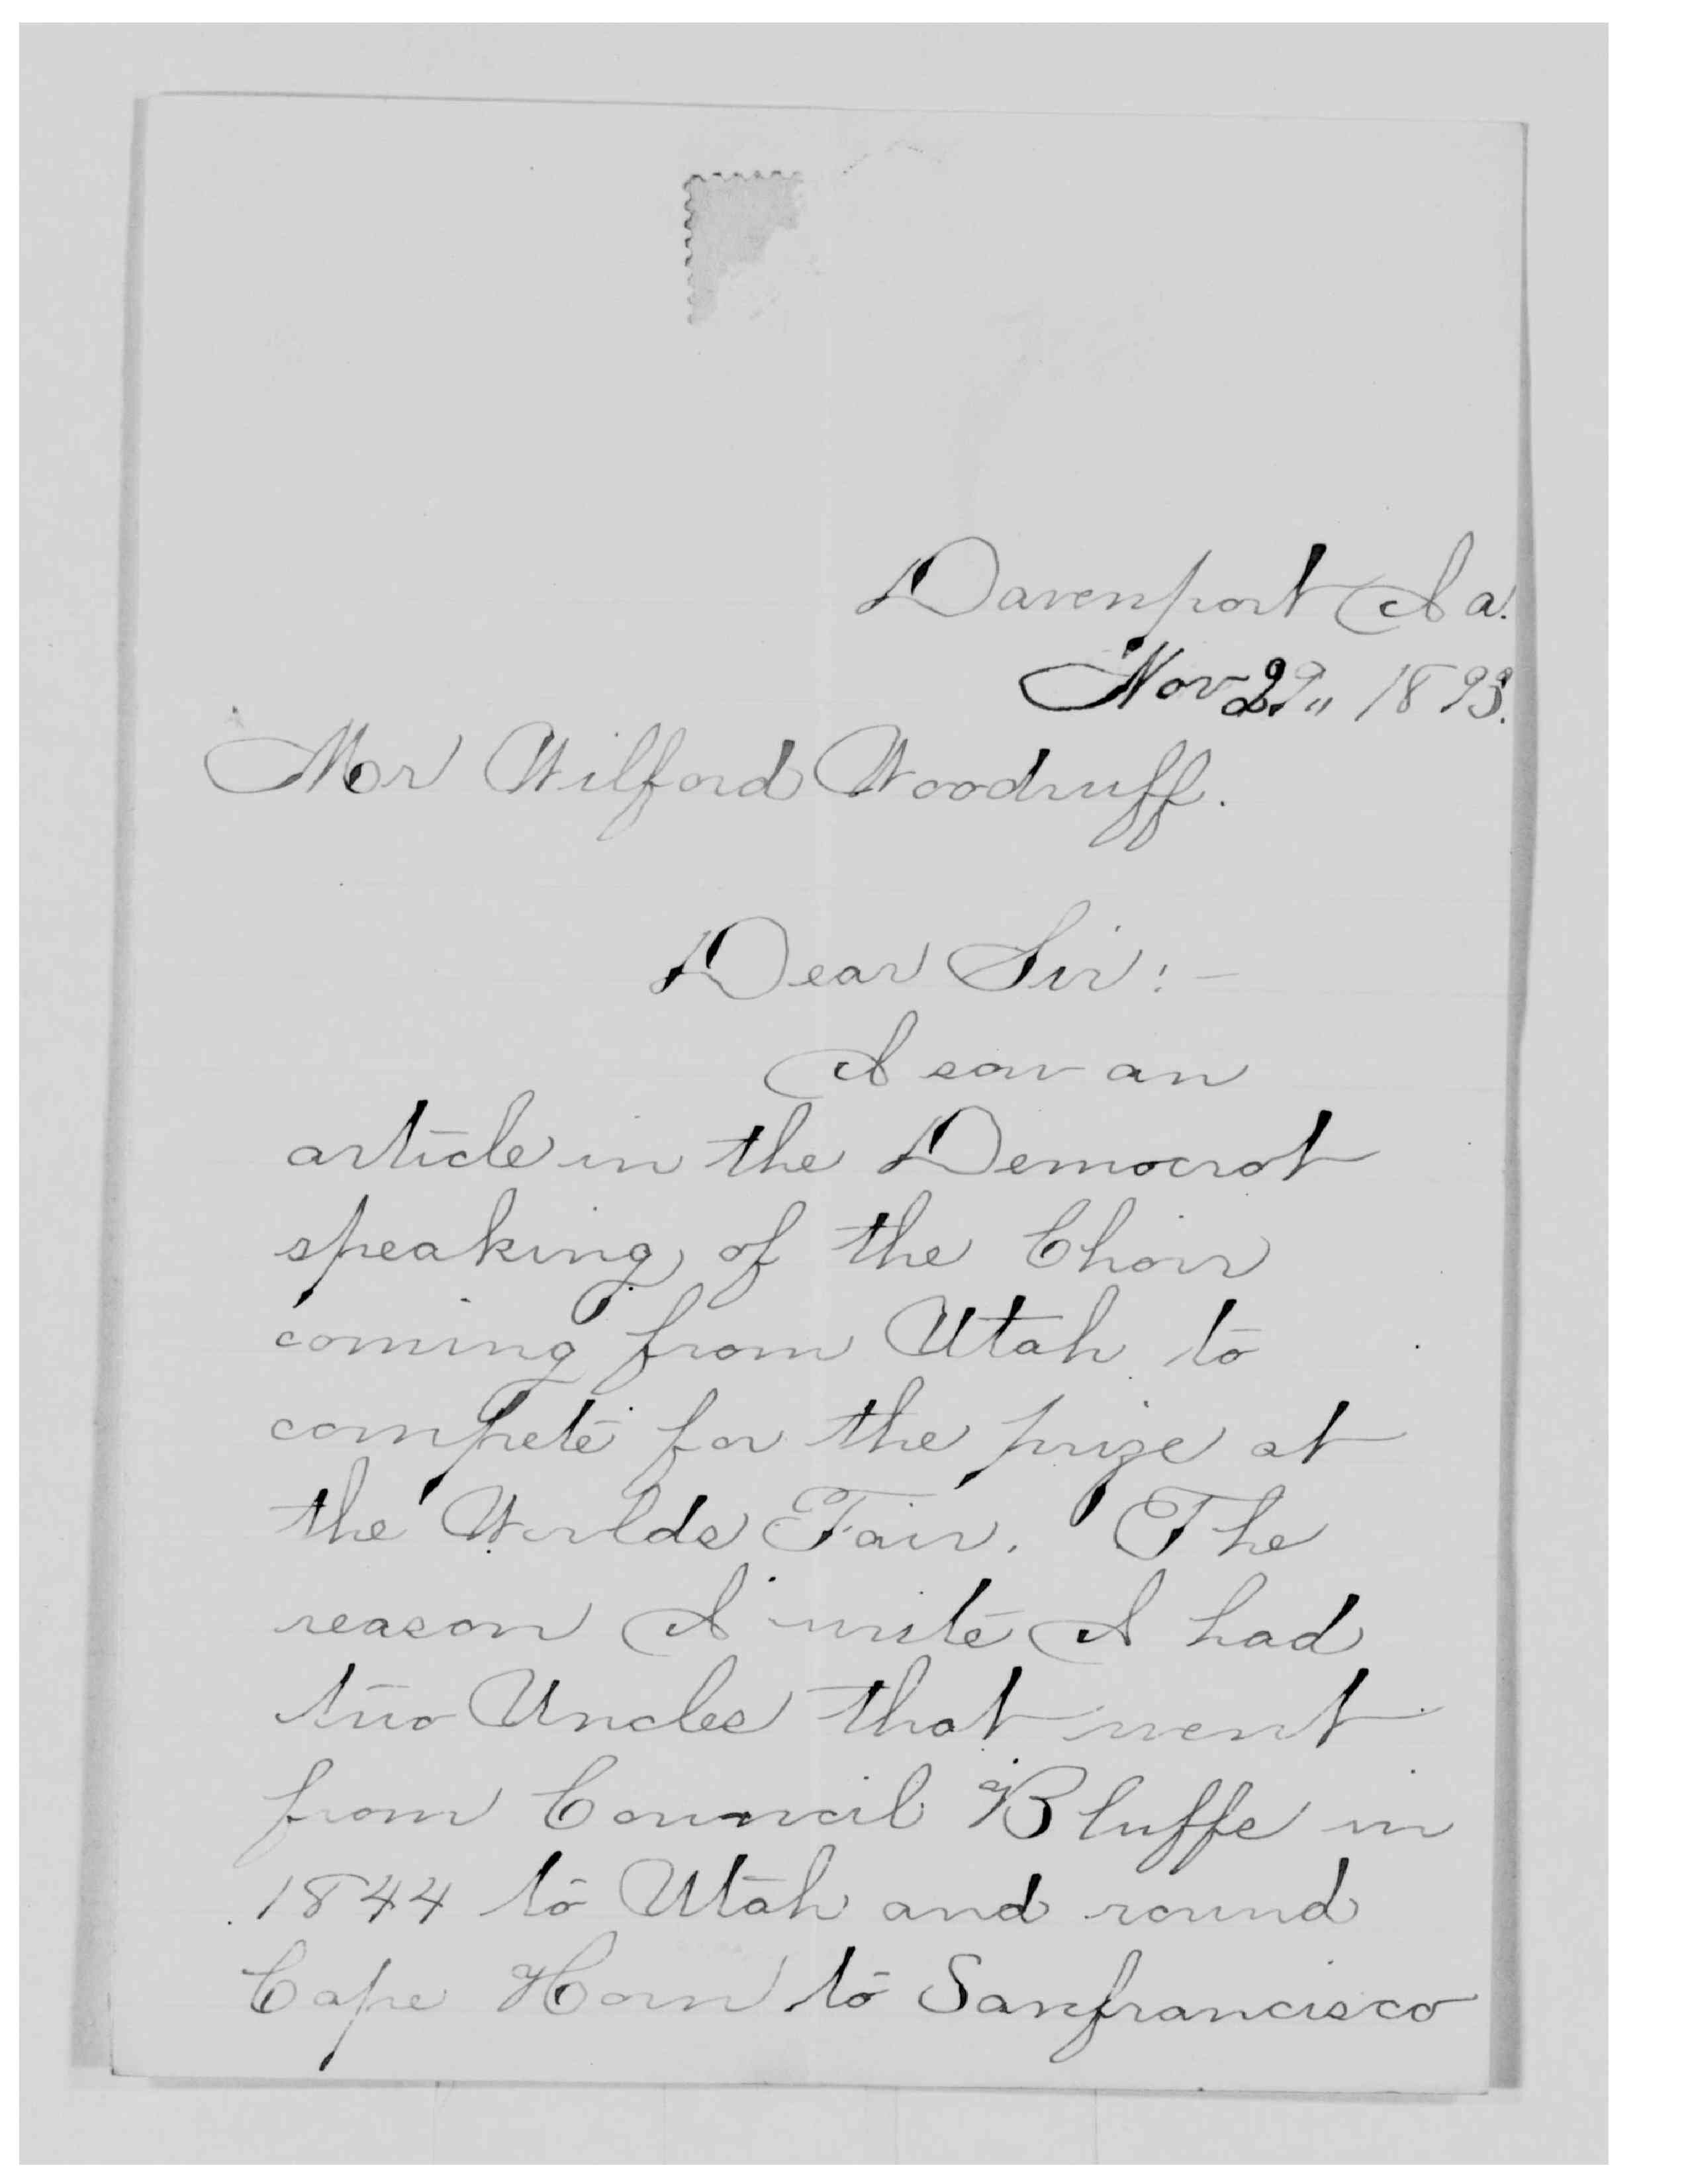 Davenport Ia.
Nov 29" 1893.
Mr Wilford Woodruff.
Dear Sir:-
I saw an
article in the Democrat
speaking of the Choir
coming from Utah to
compete for the prize at
the Worlds Fair. The
reason I write I had
two Uncles that went
from Council Bluffs in
1844 to Utah and round
Cape Horn to Sanfrancisco